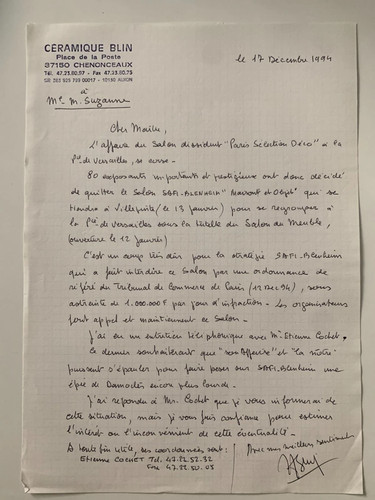 CÉRAMIQUE BLIN
Place de la Poste
37150 CHENONCEAUX
Tél. 47.23.90.97 - Fax 47.23.80.75
10180
le 17 Décembre 1994
à
Me M. Suzanne
Cher Maître,
L'affaire du Salon dissident "Paris Sélection Déco" à la
Pte de Versailles, se corse.
80 exposants importants et prestigieux ont donc décidé
de quitter le Salon SAFI-BLENHEIM "Maison et Objet" qui se
tiendra à Villepinte (le 13 janvier) pour se regrouper à
la Pte de Versailles sous la tutelle du Salon du Meuble,
(ouverture le 12 janvier)
C'est un camp très dur pour la stratégie SAFI-Blenheim
qui a fait interdire ce Salon par une ordonnance de
référé du Tribunal de Commerce de Paris (12 Dec 94), sous
astreinte de 1.000.000 F par jour d'infraction. Les organisateurs
font appel et maintiennent ce Salon.
J'ai eu un entretien téléphonique avec Mr Etienne Cochet.
Ce dernier souhaiterait que "son affaire" et "la nôtre"
puissent s'épauler pour faire peser sur SAFI-Blenheim une
épée de Damoclès encore plus lourde.
J'ai répondu à Mr. Cochet que je vous informerai de
cette situation, mais je vous fais confiance pour estimer
l'intérêt ou l'inconvénient de cette éventualité.
À toute fin utile, ses coordonnées sont:
Etienne COCHET Tél. 47.23.52.32
Avec mes meilleurs sentiments